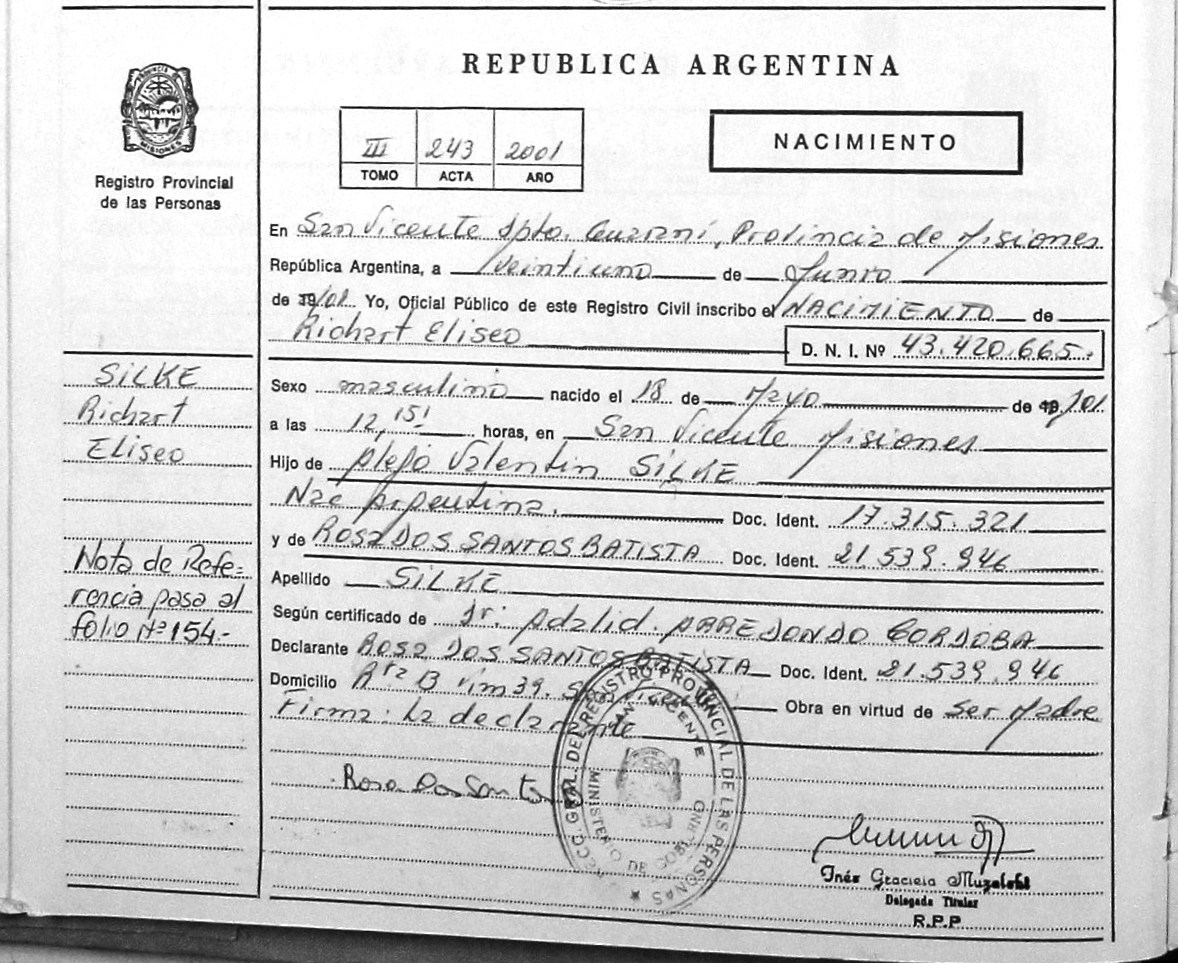 REPUBLICA ARGENTINA
MISIONES
Registro Provincial
de las Personas
III 243 2001
TOMO ACTA AÑO
NACIMIENTO
En San Vicente Dpto. Guaraní, Provincia de Misiones
República Argentina, a Veintiuno de Junio
de 19/01 Yo, Oficial Público de este Registro Civil inscribo el NACIMIENTO de
Richart Eliseo D. N. I. Nº 43.420.665.
Sexo masculino nacido el 18 de Mayo de 19/01
a las 12,15' horas, en San Vicente Misiones
Hijo de Alejo Valentin SILKE
Nac Argentina. Doc. Ident. 17.315.321
y de ROSA DOS SANTOS BATISTA Doc. Ident. 21.539.946
Apellido SILKE
Según certificado de Dr: Adalid. ARREDONDO CORDOBA
Declarante ROSA DOS SANTOS BATISTA Doc. Ident. 21.539.946
Domicilio Rta 13 Km 39. San Vicente Obra en virtud de Ser Madre
Firma: La declarante
Rosa Dos Santos
SILKE
Richart
Eliseo
Nota de Refe=
rencia pasa al
folio Nº 154.-
GRAL. DE REGISTRO PROVINCIAL DE LAS PERSONAS
SAN VICENTE
MINISTERIO DE GOBIERNO
Inés Graciela Muzalski
Delegada Titular
R.P.P